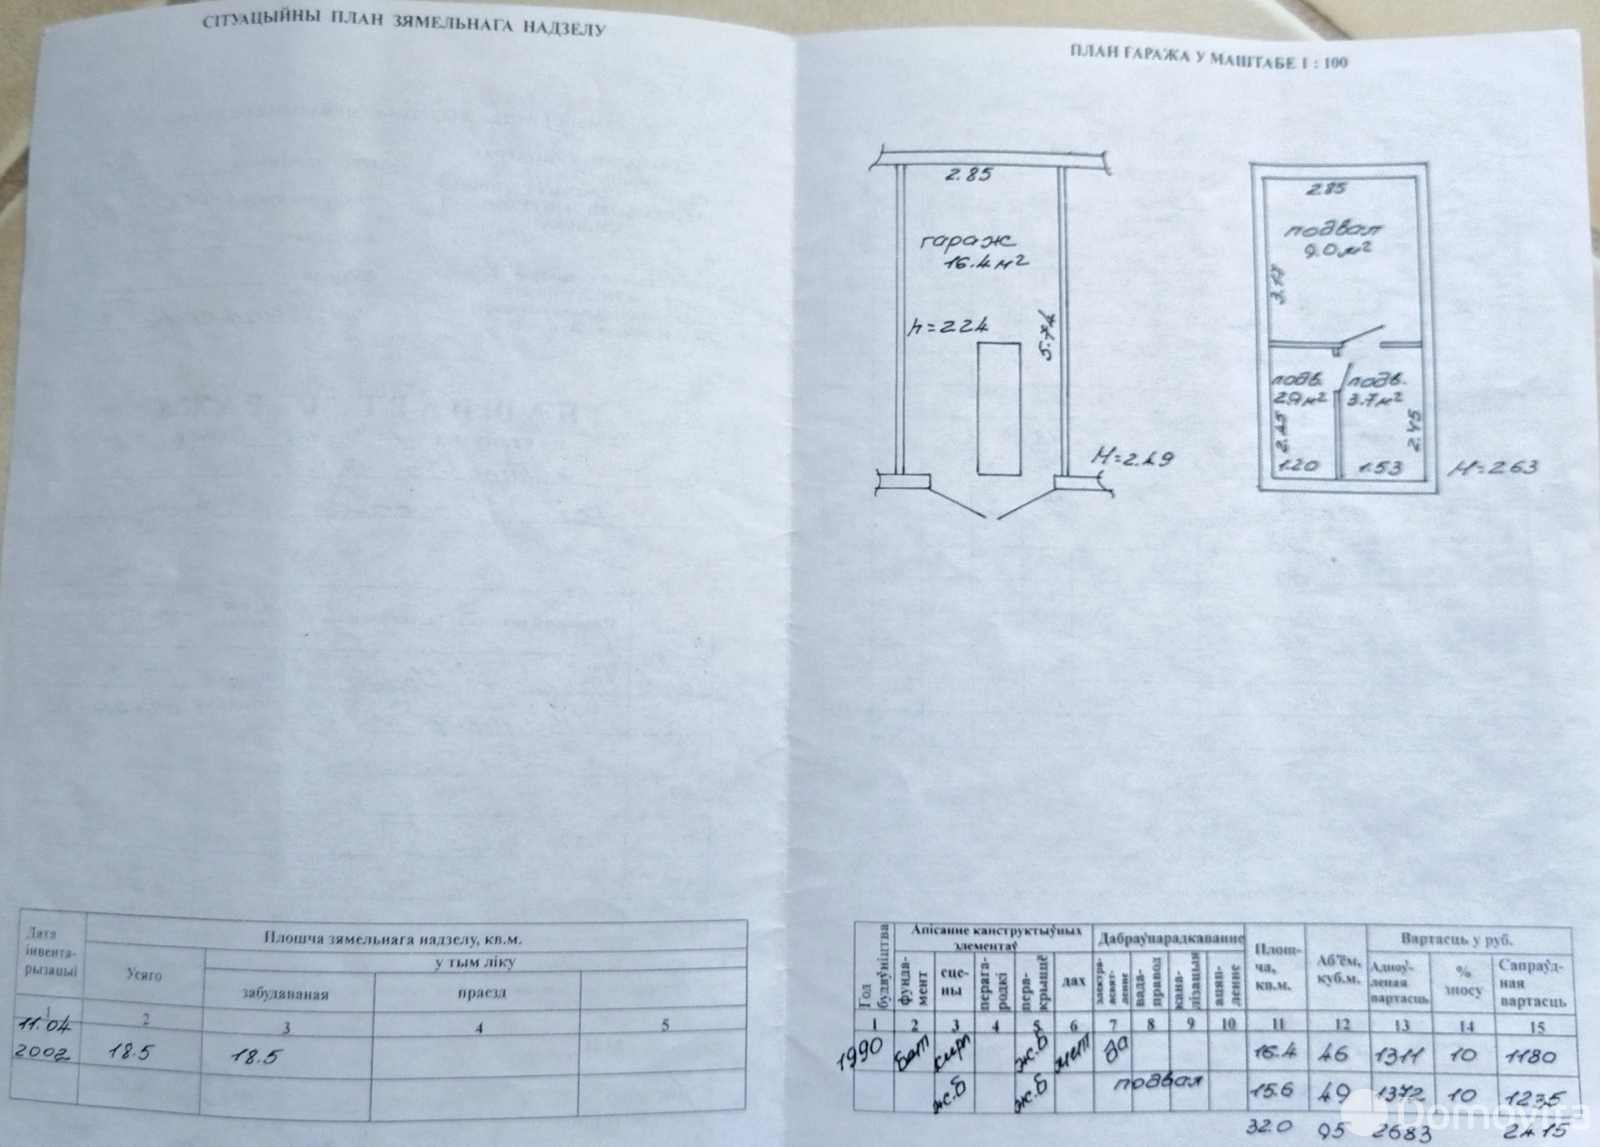 СІТУАЦЫЙНЫ ПЛАН ЗЯМЕЛЬНАГА НАДЗЕЛУ
Дата інвента-рызацыі
Плошча зямельнага надзелу, кв.м.
Усяго
у тым ліку
забудаваная
праезд
1 2 3 4 5
11.04 2002 18.5 18.5
ПЛАН ГАРАЖА У МАШТАБЕ 1 : 100
2.85
гараж
16.4 м²
h=2.24
5.74
H=2.49
2.85
подвал
9.0 м²
3.17
подв. 2.9 м²
подв. 3.7 м²
2.45
2.45
1.20
1.53
H=2.63
Год будаўніцтва
Апісанне канструктыўных элементаў
Дабраўпарадкаванне
Плош-ча, кв.м.
Аб'ём, куб.м.
Вартасць у руб.
фунда-мент
сце-ны
перага-родкі
пера-крыццё
дах
электра-асвят-ленне
вада-правод
кана-лізацыя
ацяп-ленне
Адноў-леная вартасць
% зносу
Сапраўд-ная вартасць
1 2 3 4 5 6 7 8 9 10 11 12 13 14 15
1990 бет кирп ж.б мет да 16.4 46 1311 10 1180
ж.б ж.б подвал 15.6 49 1372 10 1235
32.0 95 2683 2415
Domovita